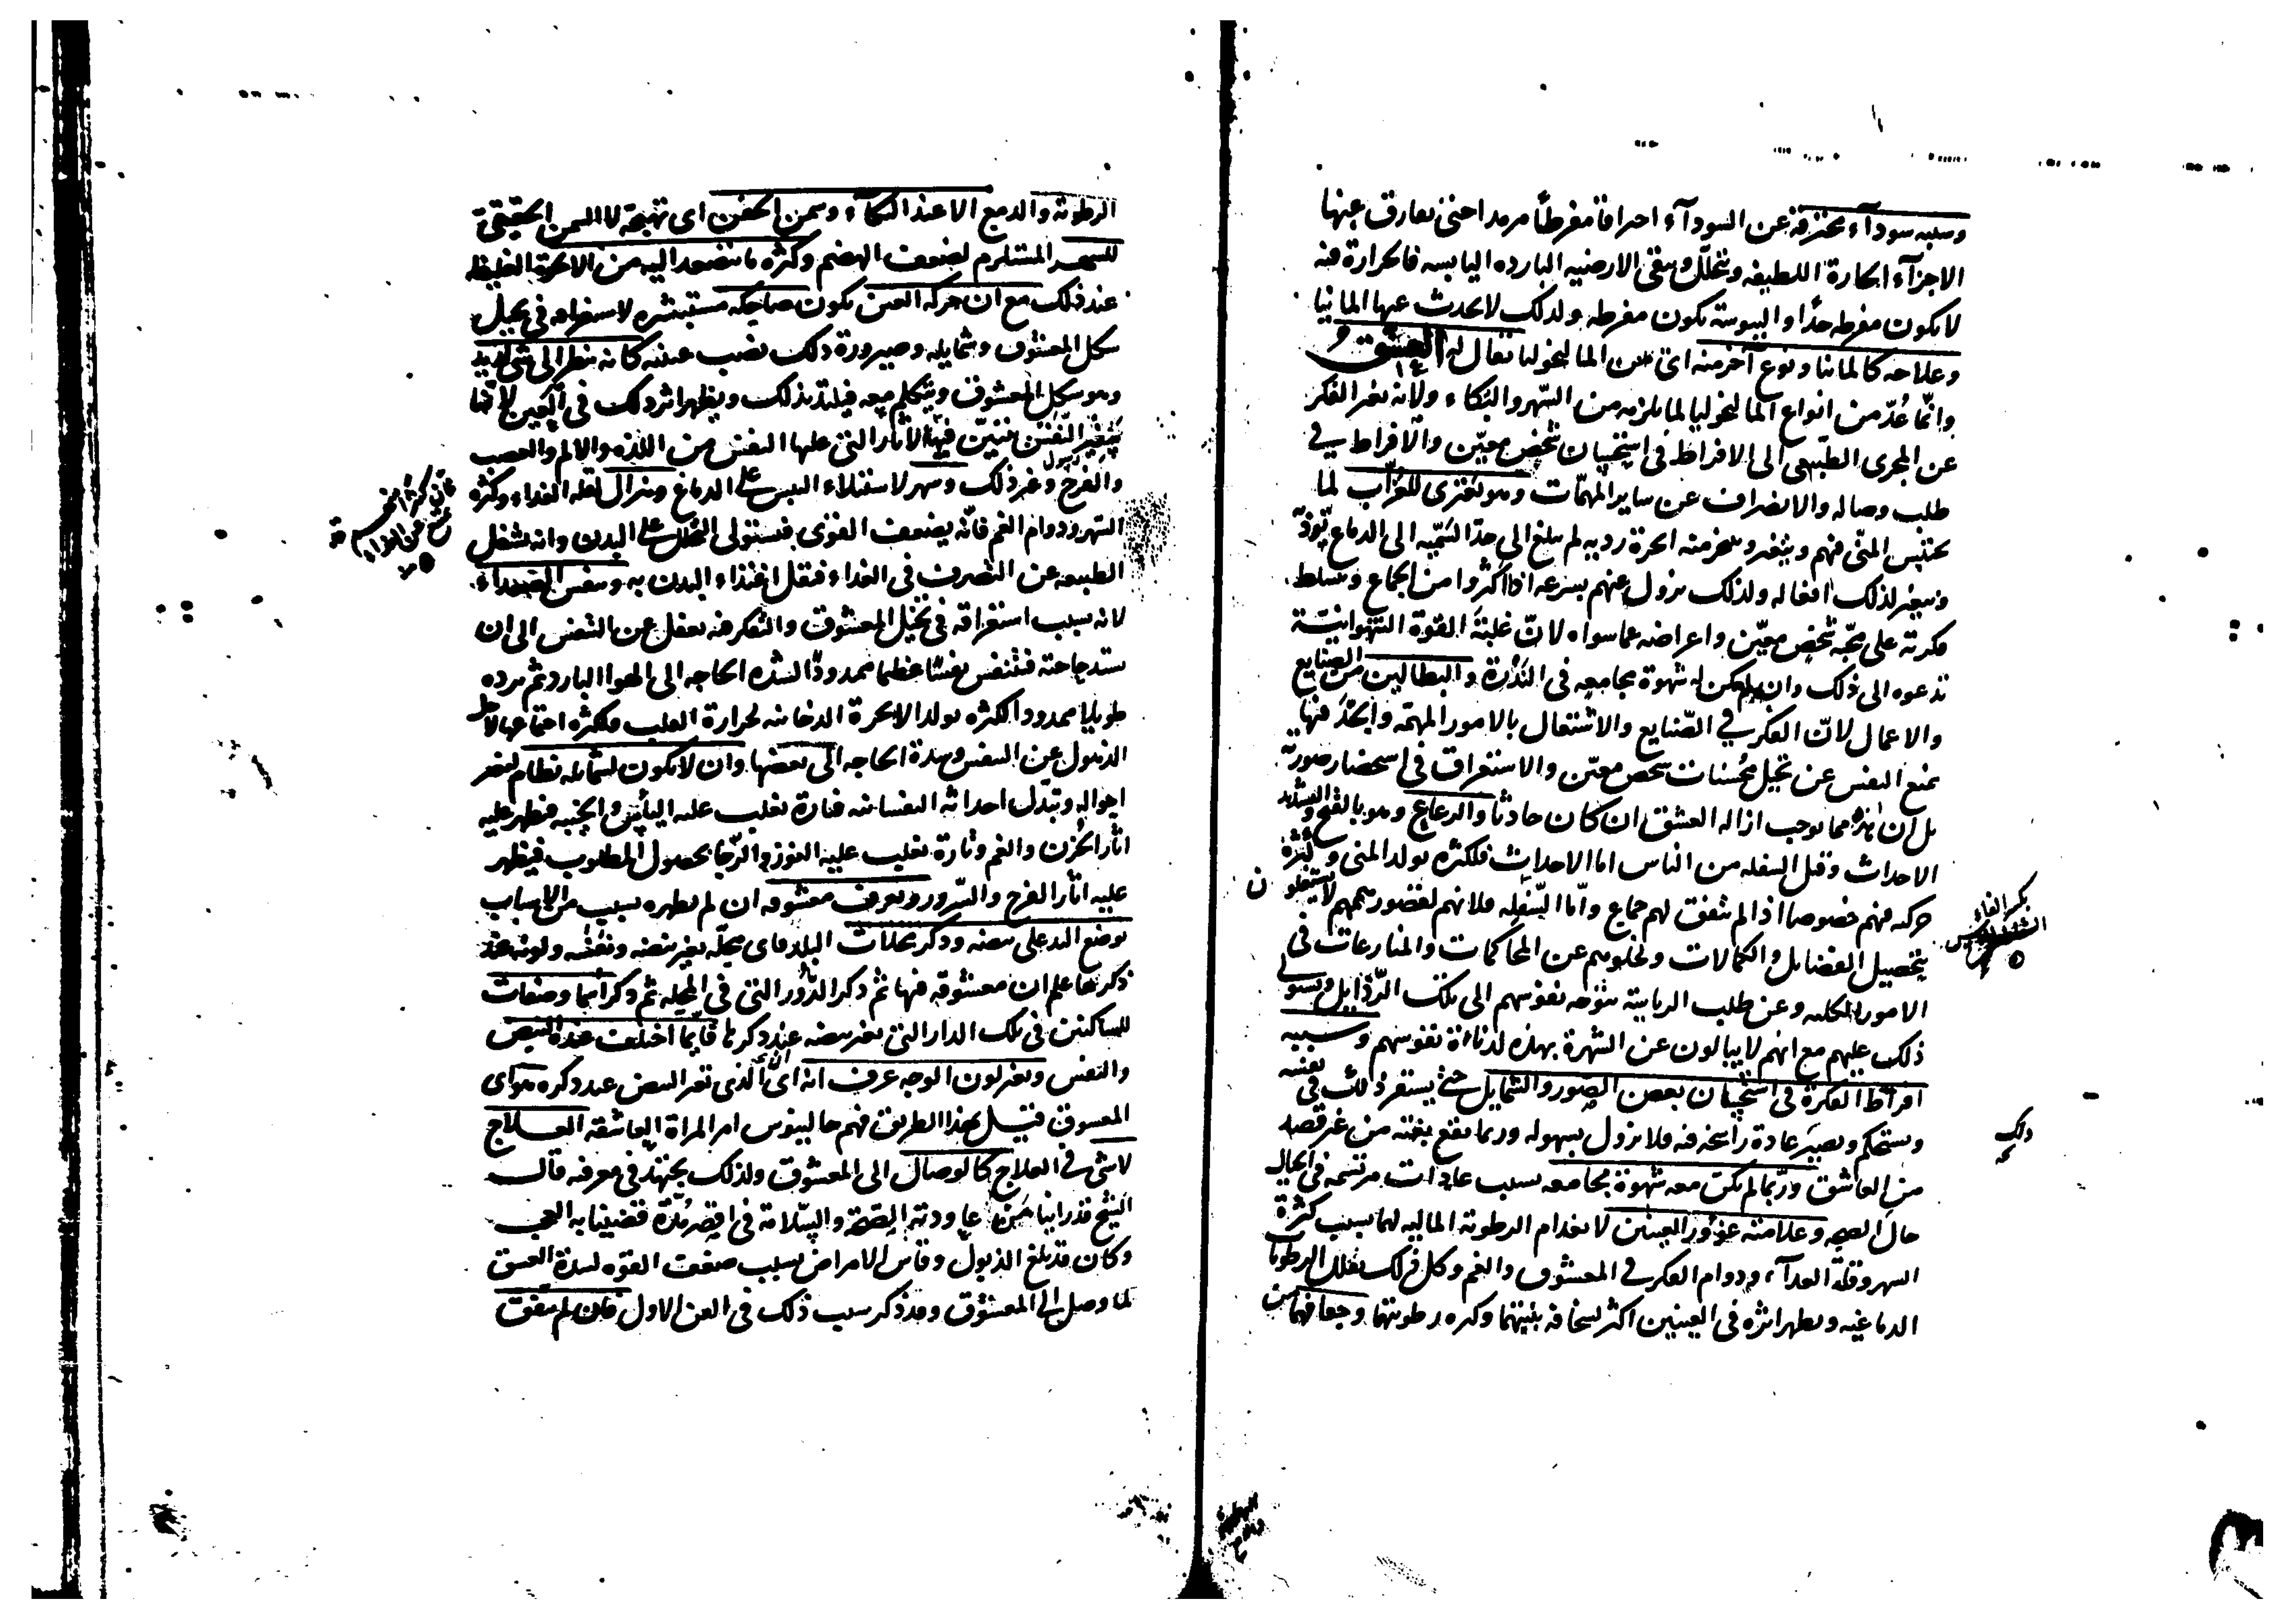 وسببه سوداء محترقة عن السوداء احراقا مفرطا مرمدا حتى تفارق عنها
الاجزاء الحارة اللطيفه وتتحلل وتبقى الارضيه البارده اليابسه فالحرارة فيه
لا تكون مفرطه جدا واليبوسة تكون مفرطه ولذلك لا يحدث عنها المانيا
وعلاجه كالمانيا ونوع آخر منه اى من الماليخوليا يقال له العشق و
وانما عد من انواع الماليخوليا لما يلزمه من السهر والبكاء ولانه تغير الفكر
عن المجرى الطبيعى الى الافراط فى استحسان شخص معين والافراط في
طلب وصاله والانصراف عن ساير المهمات وهو يعترى للعزاب لما
يحتبس المنى فيهم ويتغير وتبخر منه ابخرة رديه لم يبلغ الى حد السميه الى الدماغ تؤذيه
وتتغير لذلك افعاله ولذلك يزول عنهم بسرعه اذا اكثروا من الجماع وتسلط
فكرته على محبه شخص معين واعراضه عما سواه لان غلبة القوة الشهوانية
تدعوه الى ذلك وان لم يكن له شهوة مجامعه فى الندرة والبطالين من الصنايع
والاعمال لان الفكر في الصنايع والاشتغال بالامور المهمه والجد فيها
يمنع النفس عن تخيل محسنات شخص معين والاستغراق فى استحضار صورته
بل ان هذه مما يوجب ازاله العشق ان كان حادثا والرعاع وهو بالفتح والتشديد
الاحداث وقيل السفله من الناس اما الاحداث فلكثره تولد المنى وكثرة
حركته فيهم خصوصا اذا لم يتفق لهم جماع واما السفله فلانهم لقصور هممهم لا يشتغلون
بتحصيل الفضايل والكمالات ولخلوهم عن المحاكمات والمنازعات فى
الامور الكليه وعن طلب الرياسة تتوجه نفوسهم الى تلك الرذايل ويستولى
ذلك عليهم مع انهم لا يبالون عن الشهرة بهذه لدناءة نفوسهم وسببه
افراط الفكرة فى استحسان بعض الصور والشمايل حتى يستقر ذلك فى نفسه
ويستحكم ويصير عادة راسخه فيه فلا يزول بسهوله وربما يقع بغتة من غير قصد
من العاشق وربما لم يكن معه شهوة مجامعه بسبب عادات مرتسمه فى الخيال
حال الصبى وعلامته غؤور العينين لانعدام الرطوبة الماليه لهما بسبب كثرة
السهر وقلة الغداء ودوام الفكر في المعشوق والغم وكل ذلك يقلل الرطوبات
الدماغيه ويظهر اثره فى العينين اكثر لسخافه بنيتهما وكثره رطوبتهما وجفافهما من
بكسر الفاء
ذلك
الرطوبة والدمع الا عند البكاء وسمن الجفن اى تهبجه لا السمن الحقيقى
للسهر المستلزم لضعف الهضم وكثره ما يتصعد اليه من الابخرة الغليظه
عند ذلك مع ان حركه العين تكون ضاحكه مستبشره لاستغراقه فى تخيل
شكل المعشوق وشمايله وصيرورة ذلك نصب عينيه كانه ينظر الى شى لذيذ
وهو شكل المعشوق ويتكلم معه فيلتذ بذلك ويظهر اثر ذلك فى العين لانها
بتغير النفس يتبين فيها الاثار التى عليها النفس من اللذه والالم والغضب
والفرح وغير ذلك وسهر لاستيلاء اليبس على الدماغ وهزال لقله الغداء وكثره
السهر ودوام الغم فانه يضعف القوى فيستولى التحلل على البدن وانه يشغل
الطبيعه عن التصرف فى الغداء فيقل اغتذاء البدن به وتنفس الصعداء
لانه بسبب استغراقه فى تخيل المعشوق والتفكر فيه يغفل عن التنفس الى ان
يشتد حاجته فيتنفس نفسا عظيما ممدودا لشدة الحاجه الى الهوا البارد ثم يرده
طويلا ممدودا لكثره تولد الابخرة الدخانيه لحرارة القلب ولكثره احتماعها لاجل
الذهول عن التنفس وشدة الحاجه الى نفضها وان لا يكون لشمايله نظام لتغير
احواله وتبدل احداثه النفسانيه فتارة تغلب عليه الياس والخيبه فيظهر عليه
اثار الحزن والغم وتارة تغلب عليه الفوز والرجا بحصول المطلوب فيظهر
عليه اثار الفرح والسرور ويعرف معشوقه ان لم يظهره بسبب من الاسباب
بوضع اليد على نبضه وذكر محلات البلد فاى محله يغير نبضه ونفسه ولونه عند
ذكرها علم ان معشوقه فيها ثم ذكر الدور التى فى المحله ثم ذكر اسما وصفات
للساكنين فى تلك الدار التى تغير نبضه عند ذكرها فايما اختلف عنده النبض
والنفس وتغير لون الوجه عرف انه اى الذى تغير النبض عند ذكره هو اى
المعشوق قيل بهذا الطريق فهم جالينوس امر المراة العاشقه العلاج
لا شى فى العلاج كالوصال الى المعشوق ولذلك يجتهد فى معرفته قال
الشيخ قد راينا من عاودته الصحة والسلامة فى اقصر مدة فقضينا به العجب
وكان قد بلغ الذبول وقاس الامراض بسبب ضعف القوه لشدة العشق
لما وصل الى المعشوق وقد ذكر سبب ذلك فى الفن الاول فان لم يتفق